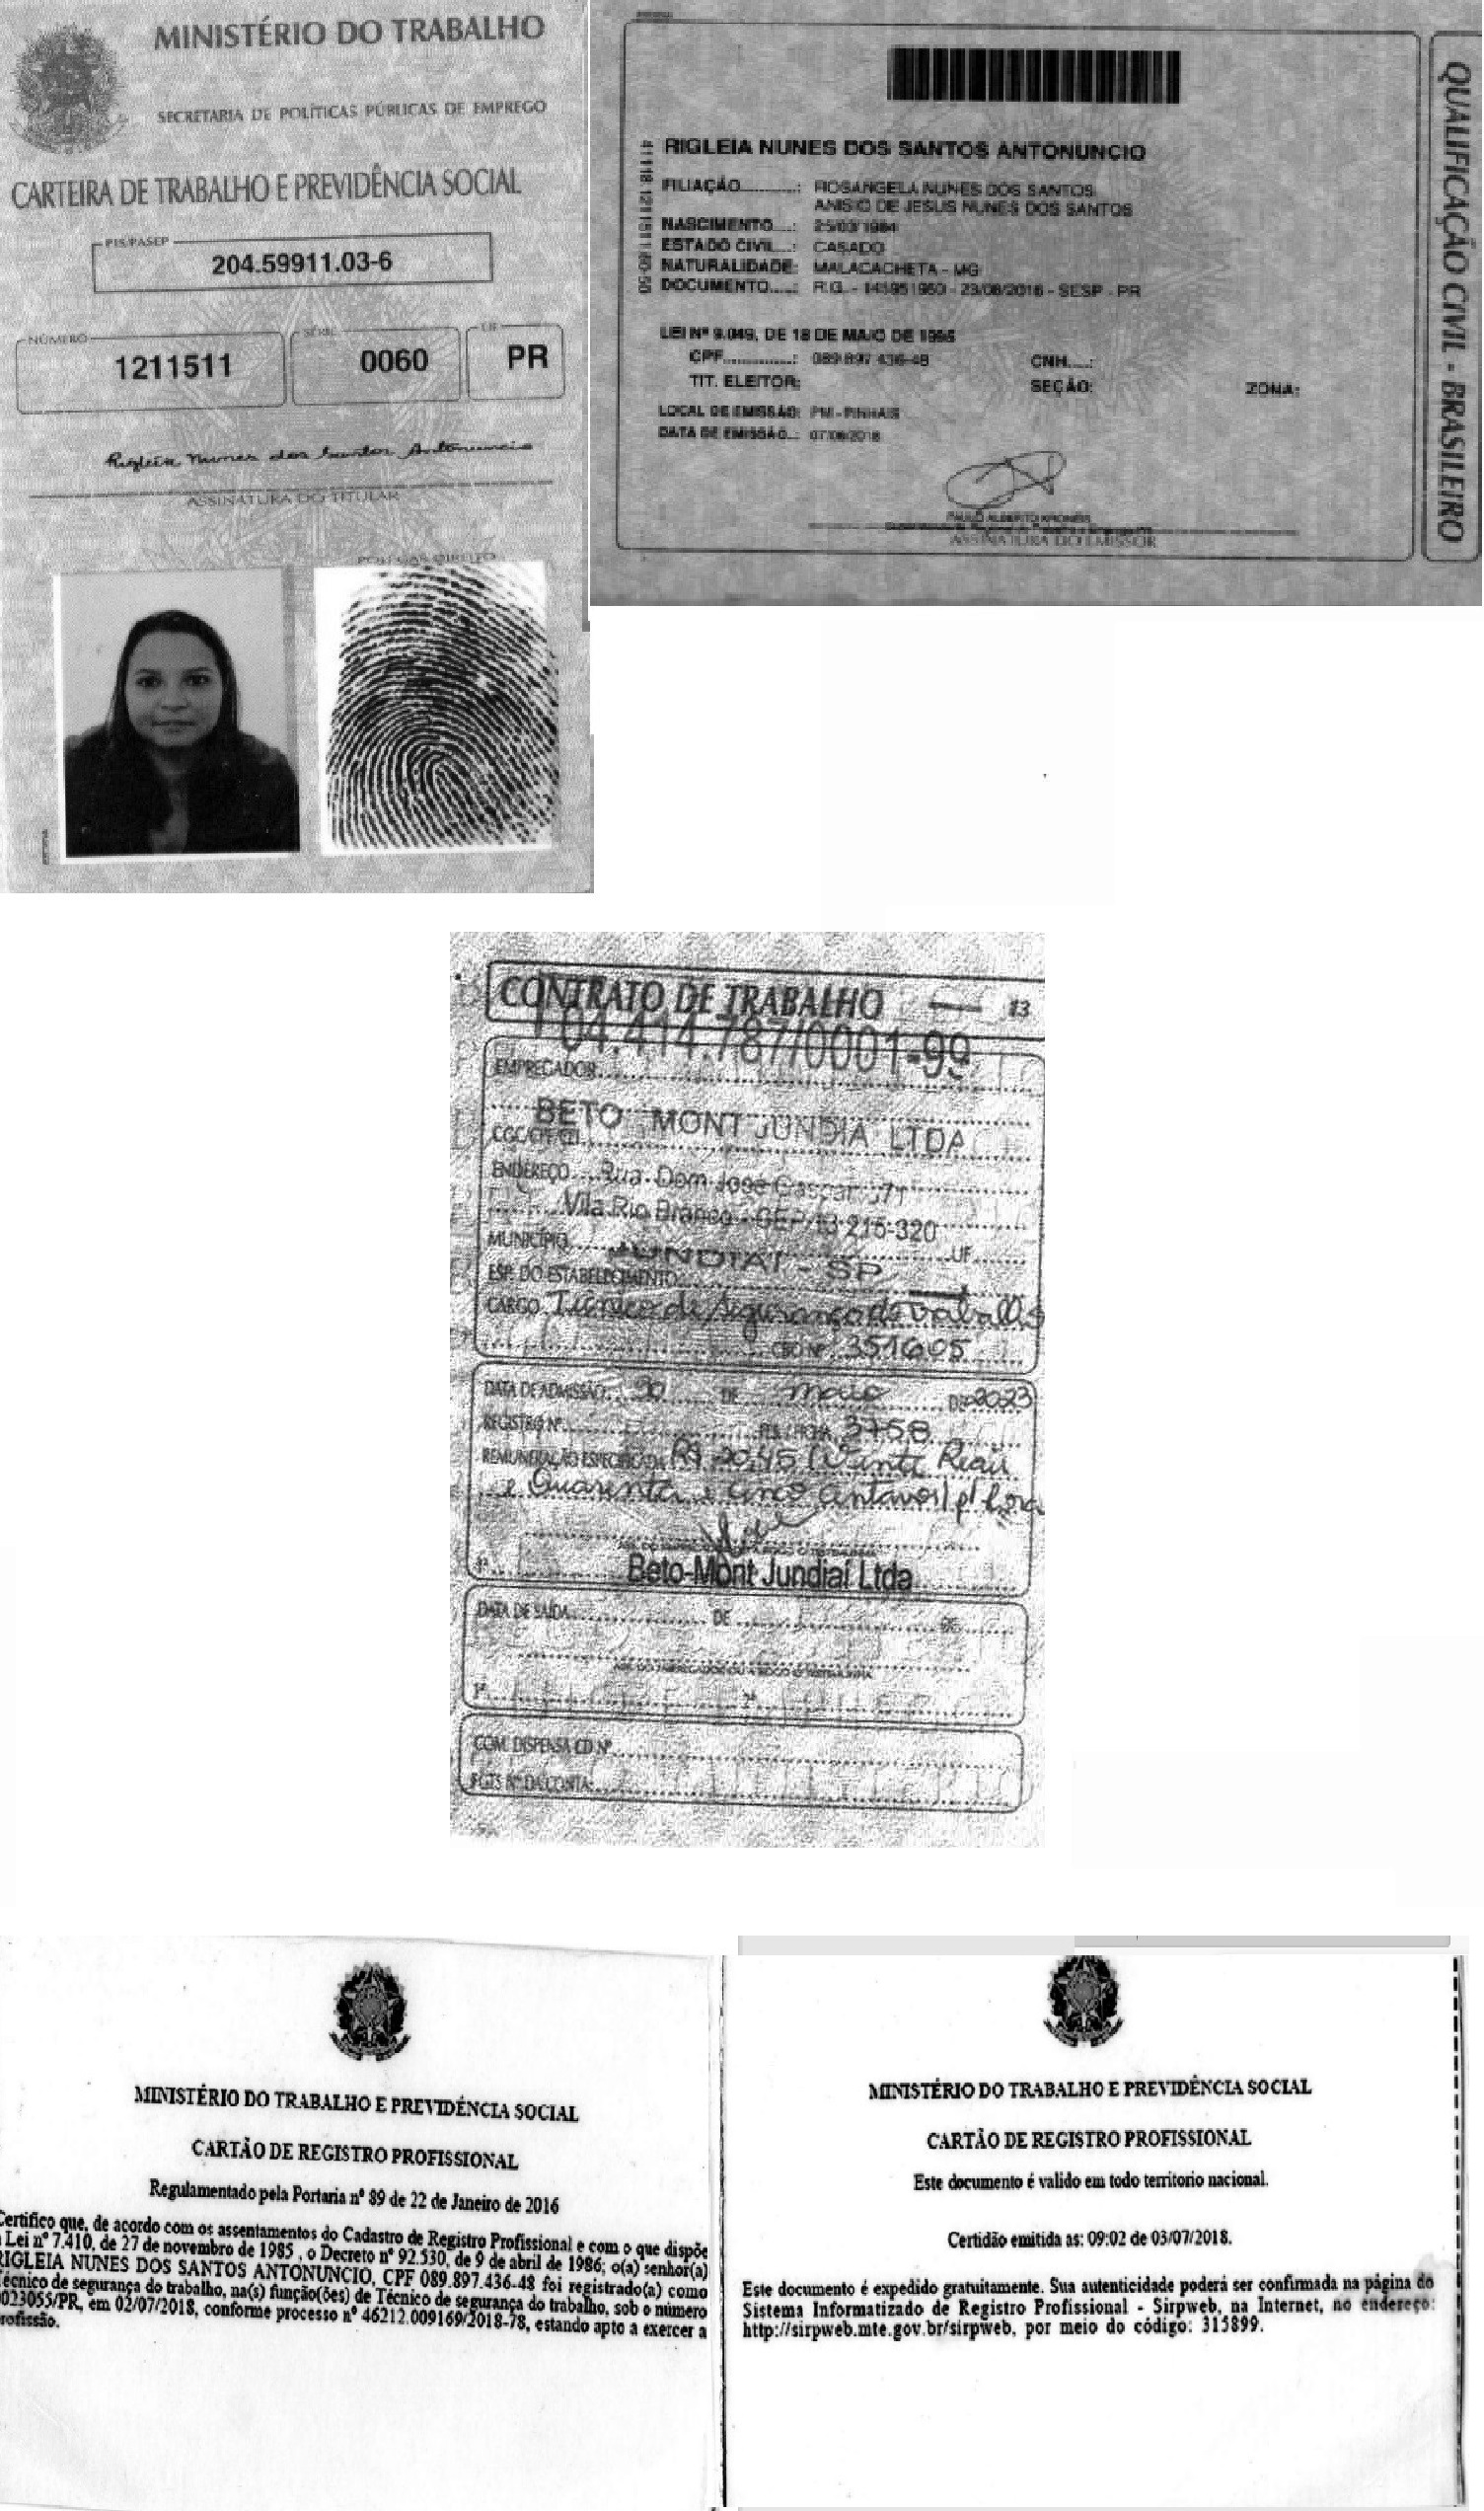 MINISTÉRIO DO TRABALHO
SECRETARIA DE POLÍTICAS PÚBLICAS DE EMPREGO
CARTEIRA DE TRABALHO E PREVIDÊNCIA SOCIAL
PIS/PASEP
204.59911.03-6
NÚMERO SÉRIE UF
1211511 0060 PR
Rigleia Nunes dos Santos Antonuncio
ASSINATURA DO TITULAR
POLEGAR DIREITO
QUALIFICAÇÃO CIVIL - BRASILEIRO
RIGLEIA NUNES DOS SANTOS ANTONUNCIO
FILIAÇÃO..........: ROSANGELA NUNES DOS SANTOS
ANISIO DE JESUS NUNES DOS SANTOS
NASCIMENTO....: 25/03/1984
ESTADO CIVIL...: CASADO
NATURALIDADE: MALACACHETA - MG
DOCUMENTO.....: R.G. - 145951960 - 23/08/2016 - SESP - PR
LEI Nº 9.049, DE 18 DE MAIO DE 1995
CPF..............: 089.897.436-48 CNH.....:
TIT. ELEITOR: SEÇÃO: ZONA:
LOCAL DE EMISSÃO: PM - PINHAIS
DATA DE EMISSÃO..: 07/06/2018
ASSINATURA DO EMISSOR
CONTRATO DE TRABALHO 13
04.414.787/0001-99
EMPREGADOR
BETO MONT JUNDIA LTDA
CGC/CPF/CEI
ENDEREÇO Rua Dom José Gaspar, 71
Vila Rio Branco - CEP 13 215-320
MUNICÍPIO JUNDIAÍ - SP UF
ESP. DO ESTABELECIMENTO
CARGO Técnico de Segurança do Trabalho
CBO Nº 351605
DATA DE ADMISSÃO 30 DE maio DE 2023
REGISTRO Nº FLS. / FICHA 3758
REMUNERAÇÃO ESPECIFICADA R$ 20,45 (Vinte Reais
e Quarenta e Cinco Centavos) p/ hora
Beto-Mont Jundiaí Ltda
DATA DE SAÍDA DE DE
ASS. DO EMPREGADOR OU A ROGO C/ TESTEMUNHA
1ª 2ª
COM. DISPENSA CD Nº
FGTS Nº DA CONTA:
MINISTÉRIO DO TRABALHO E PREVIDÊNCIA SOCIAL
CARTÃO DE REGISTRO PROFISSIONAL
Regulamentado pela Portaria nº 89 de 22 de Janeiro de 2016
Certifico que, de acordo com os assentamentos do Cadastro de Registro Profissional e com o que dispõe
Lei nº 7.410, de 27 de novembro de 1985 , o Decreto nº 92.530, de 9 de abril de 1986; o(a) senhor(a)
RIGLEIA NUNES DOS SANTOS ANTONUNCIO, CPF 089.897.436-48 foi registrado(a) como
Técnico de segurança do trabalho, na(s) função(ões) de Técnico de segurança do trabalho, sob o número
023055/PR, em 02/07/2018, conforme processo nº 46212.009169/2018-78, estando apto a exercer a
rofissão.
MINISTÉRIO DO TRABALHO E PREVIDÊNCIA SOCIAL
CARTÃO DE REGISTRO PROFISSIONAL
Este documento é valido em todo territorio nacional.
Certidão emitida as: 09:02 de 03/07/2018.
Este documento é expedido gratuitamente. Sua autenticidade poderá ser confirmada na página do
Sistema Informatizado de Registro Profissional - Sirpweb, na Internet, no endereço:
http://sirpweb.mte.gov.br/sirpweb, por meio do código: 315899.